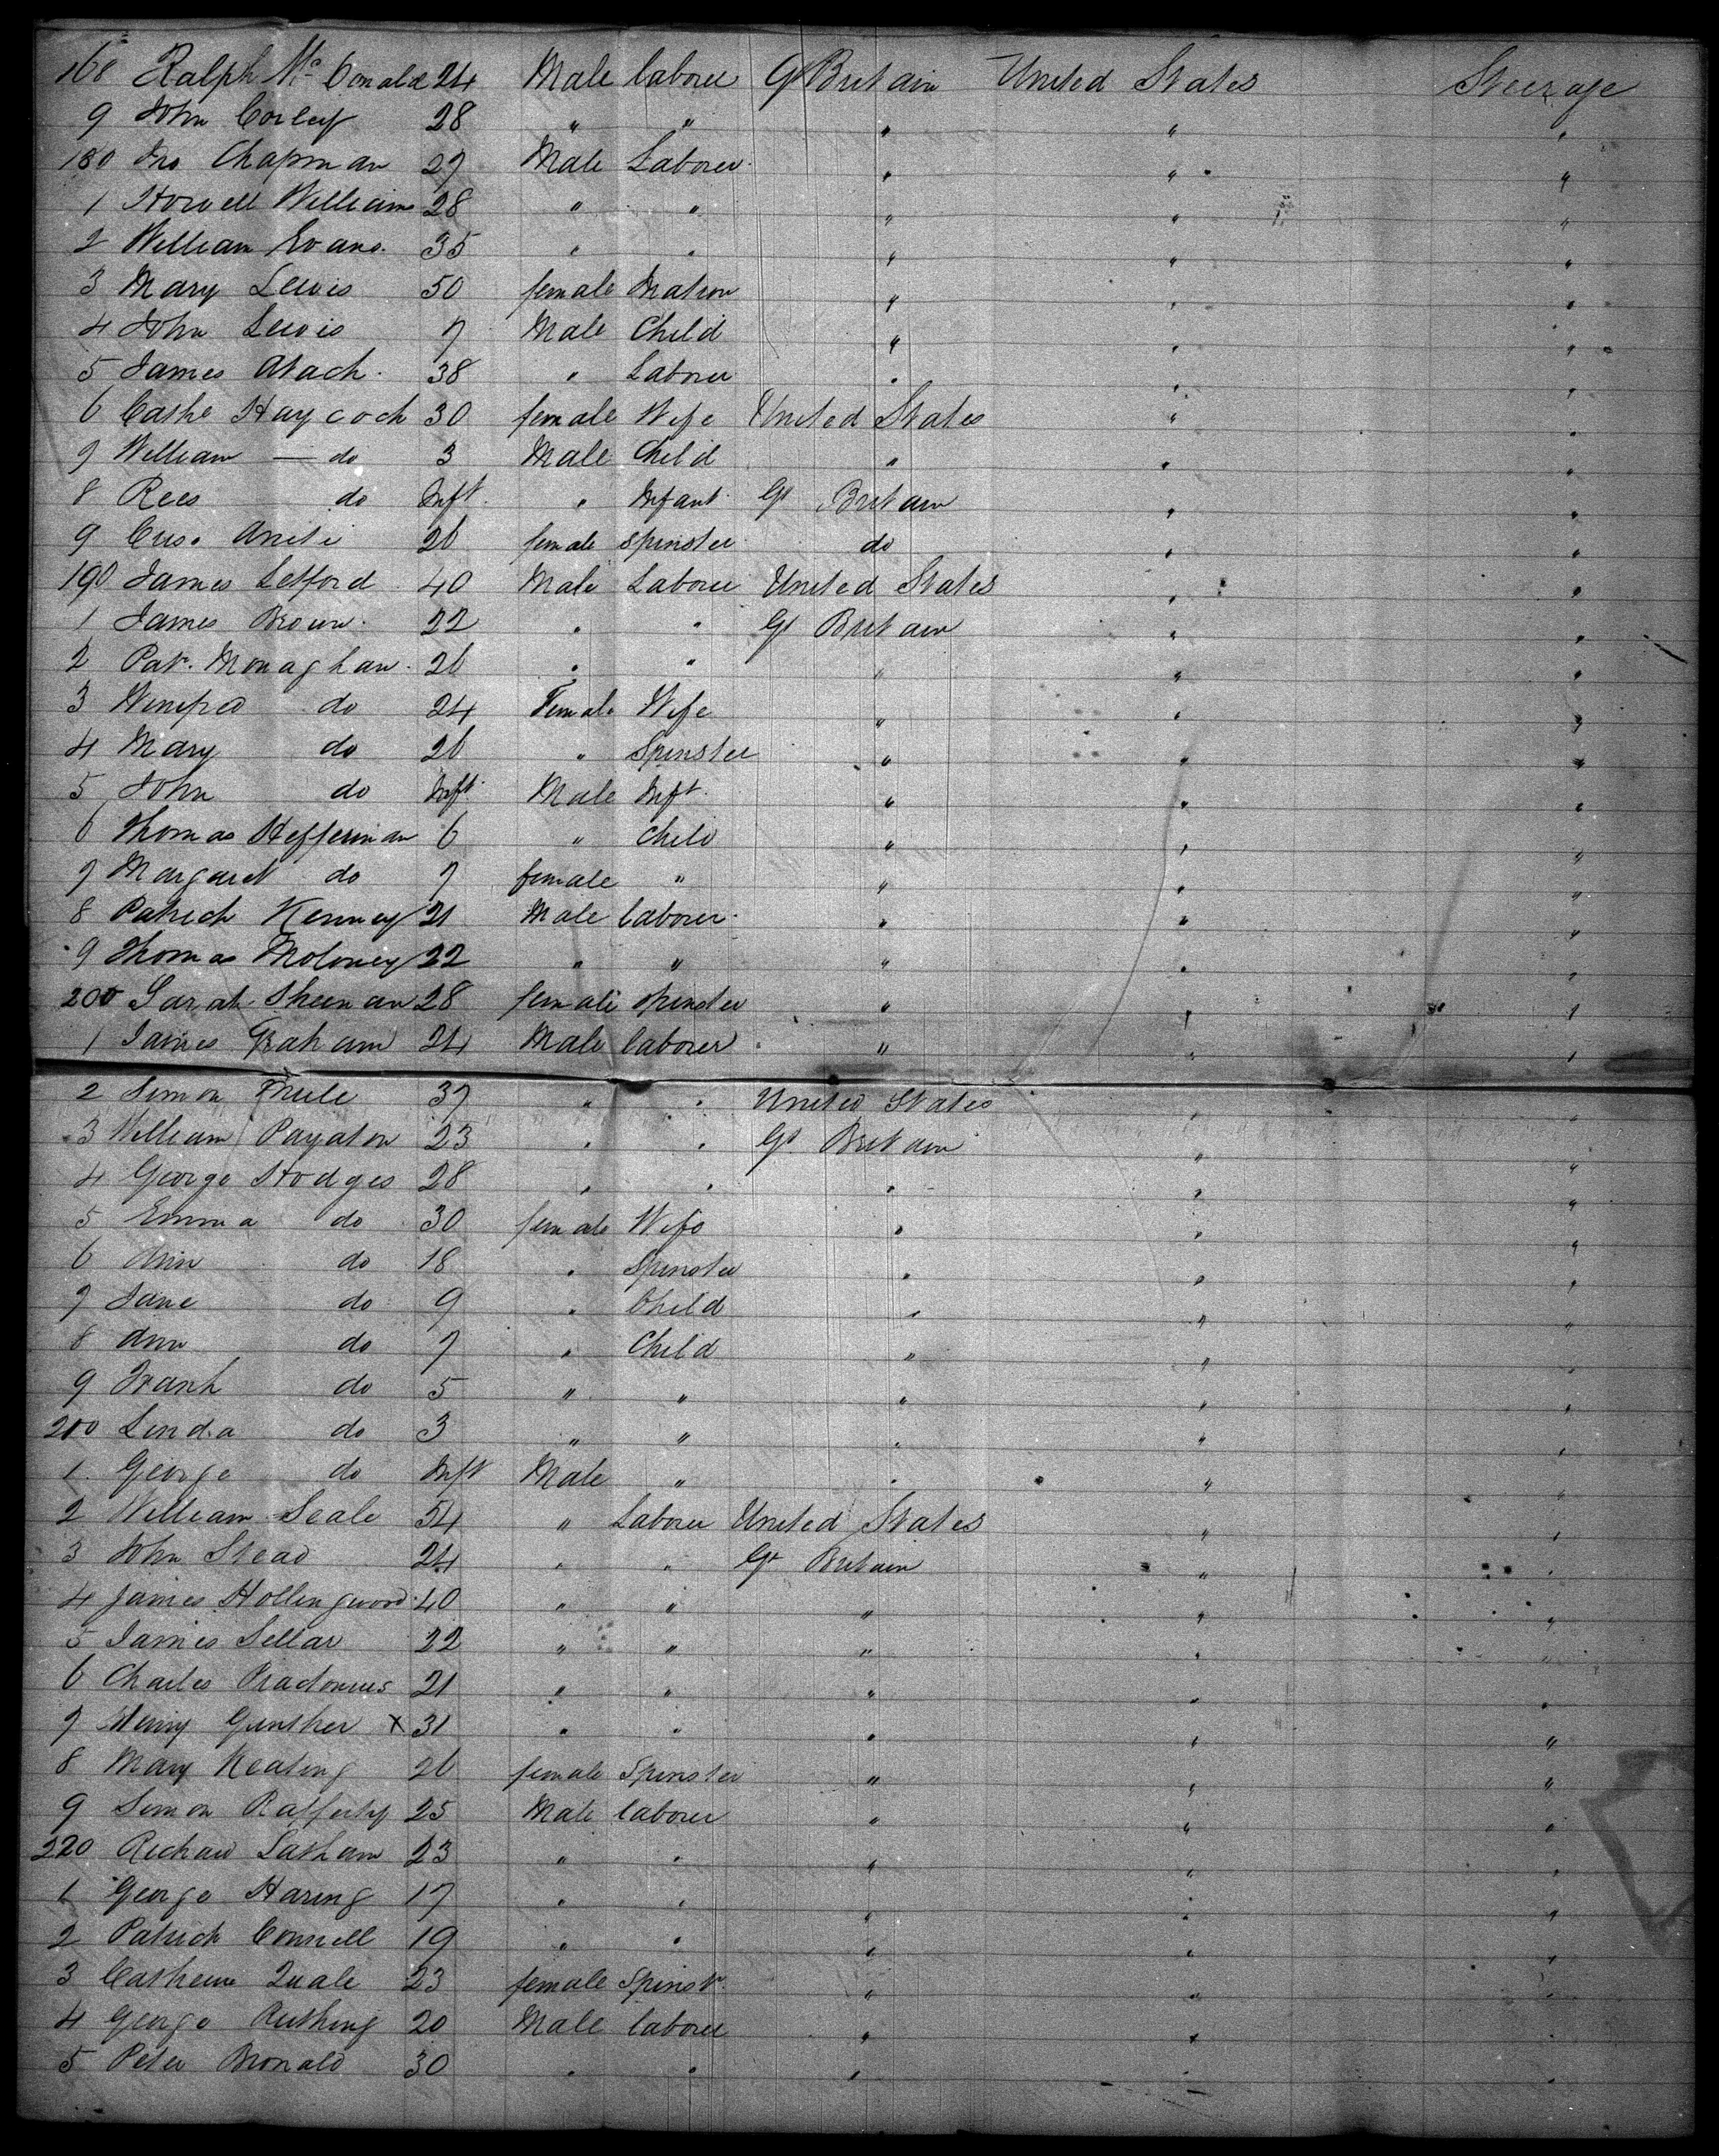 168 Ralph McDonald 24 Male laborer Gt Britain United States Steerage
9 John Corley 28 " " " " "
180 Jno Chapman 27 Male Laborer " " "
1 Howell Williams 28 " " " " "
2 William Evans. 35 " " " " "
3 Mary Lewis 50 female Matron " " "
4 John Lewis 7 Male Child " " "
5 James 38 " Laborer " " "
6 Cathe Haycock 30 female Wife United States " "
7 William — do 3 Male Child " " "
8 Rees do Inft. " Infant Gt Britain " "
9 26 female spinster do " "
190 James Lefford 40 Male Laborer United States " "
1 James Brown. 22 " " Gt Britain " "
2 Pat. Monaghan. 26 " " " " "
3 Winifrd do 24 Female Wife " " "
4 Mary do 26 " Spinster " " "
5 John do Inft. Male Inft. " " "
6 Thomas Heffernan 6 " Child " " "
7 Margaret do 7 female " " " "
8 Patrick Kenney 21 Male laborer " " "
9 Thomas Moloney 22 " " " " "
200 Sarah Sheenan 28 female spinster " " "
1 James Graham 24 Male laborer " " "
2 Simon 37 " " United States " "
3 William Payaton 23 " " Gt Britain " "
4 George Hodges 28 " " " " "
5 Emma do 30 female Wife " " "
6 Ann do 18 " Spinster " " "
7 Jane do 9 " Child " " "
8 Ann do 7 " Child " " "
9 Frank do 5 " " " " "
210 Linda do 3 " " " " "
1 George do Inft Male " " " "
2 William Seale 54 " Laborer United States " "
3 John Stead 24 " " Gt Britain " "
4 James Hollingwood 40 " " " " "
5 James Sellar 22 " " " " "
6 Charles 21 " " " " "
7 Henry Gunther x 31 " " " " "
8 Mary Keating 26 female Spinster " " "
9 Simon Rafferty 25 Male laborer " " "
220 Richard Latham 23 " " " " "
1 George Haring 17 " " " " "
2 Patrick Connell 19 " " " " "
3 Catherine Quale 23 female Spinstr. " " "
4 George Rushing 20 Male laborer " " "
5 Peter Bronald 30 " " " " "